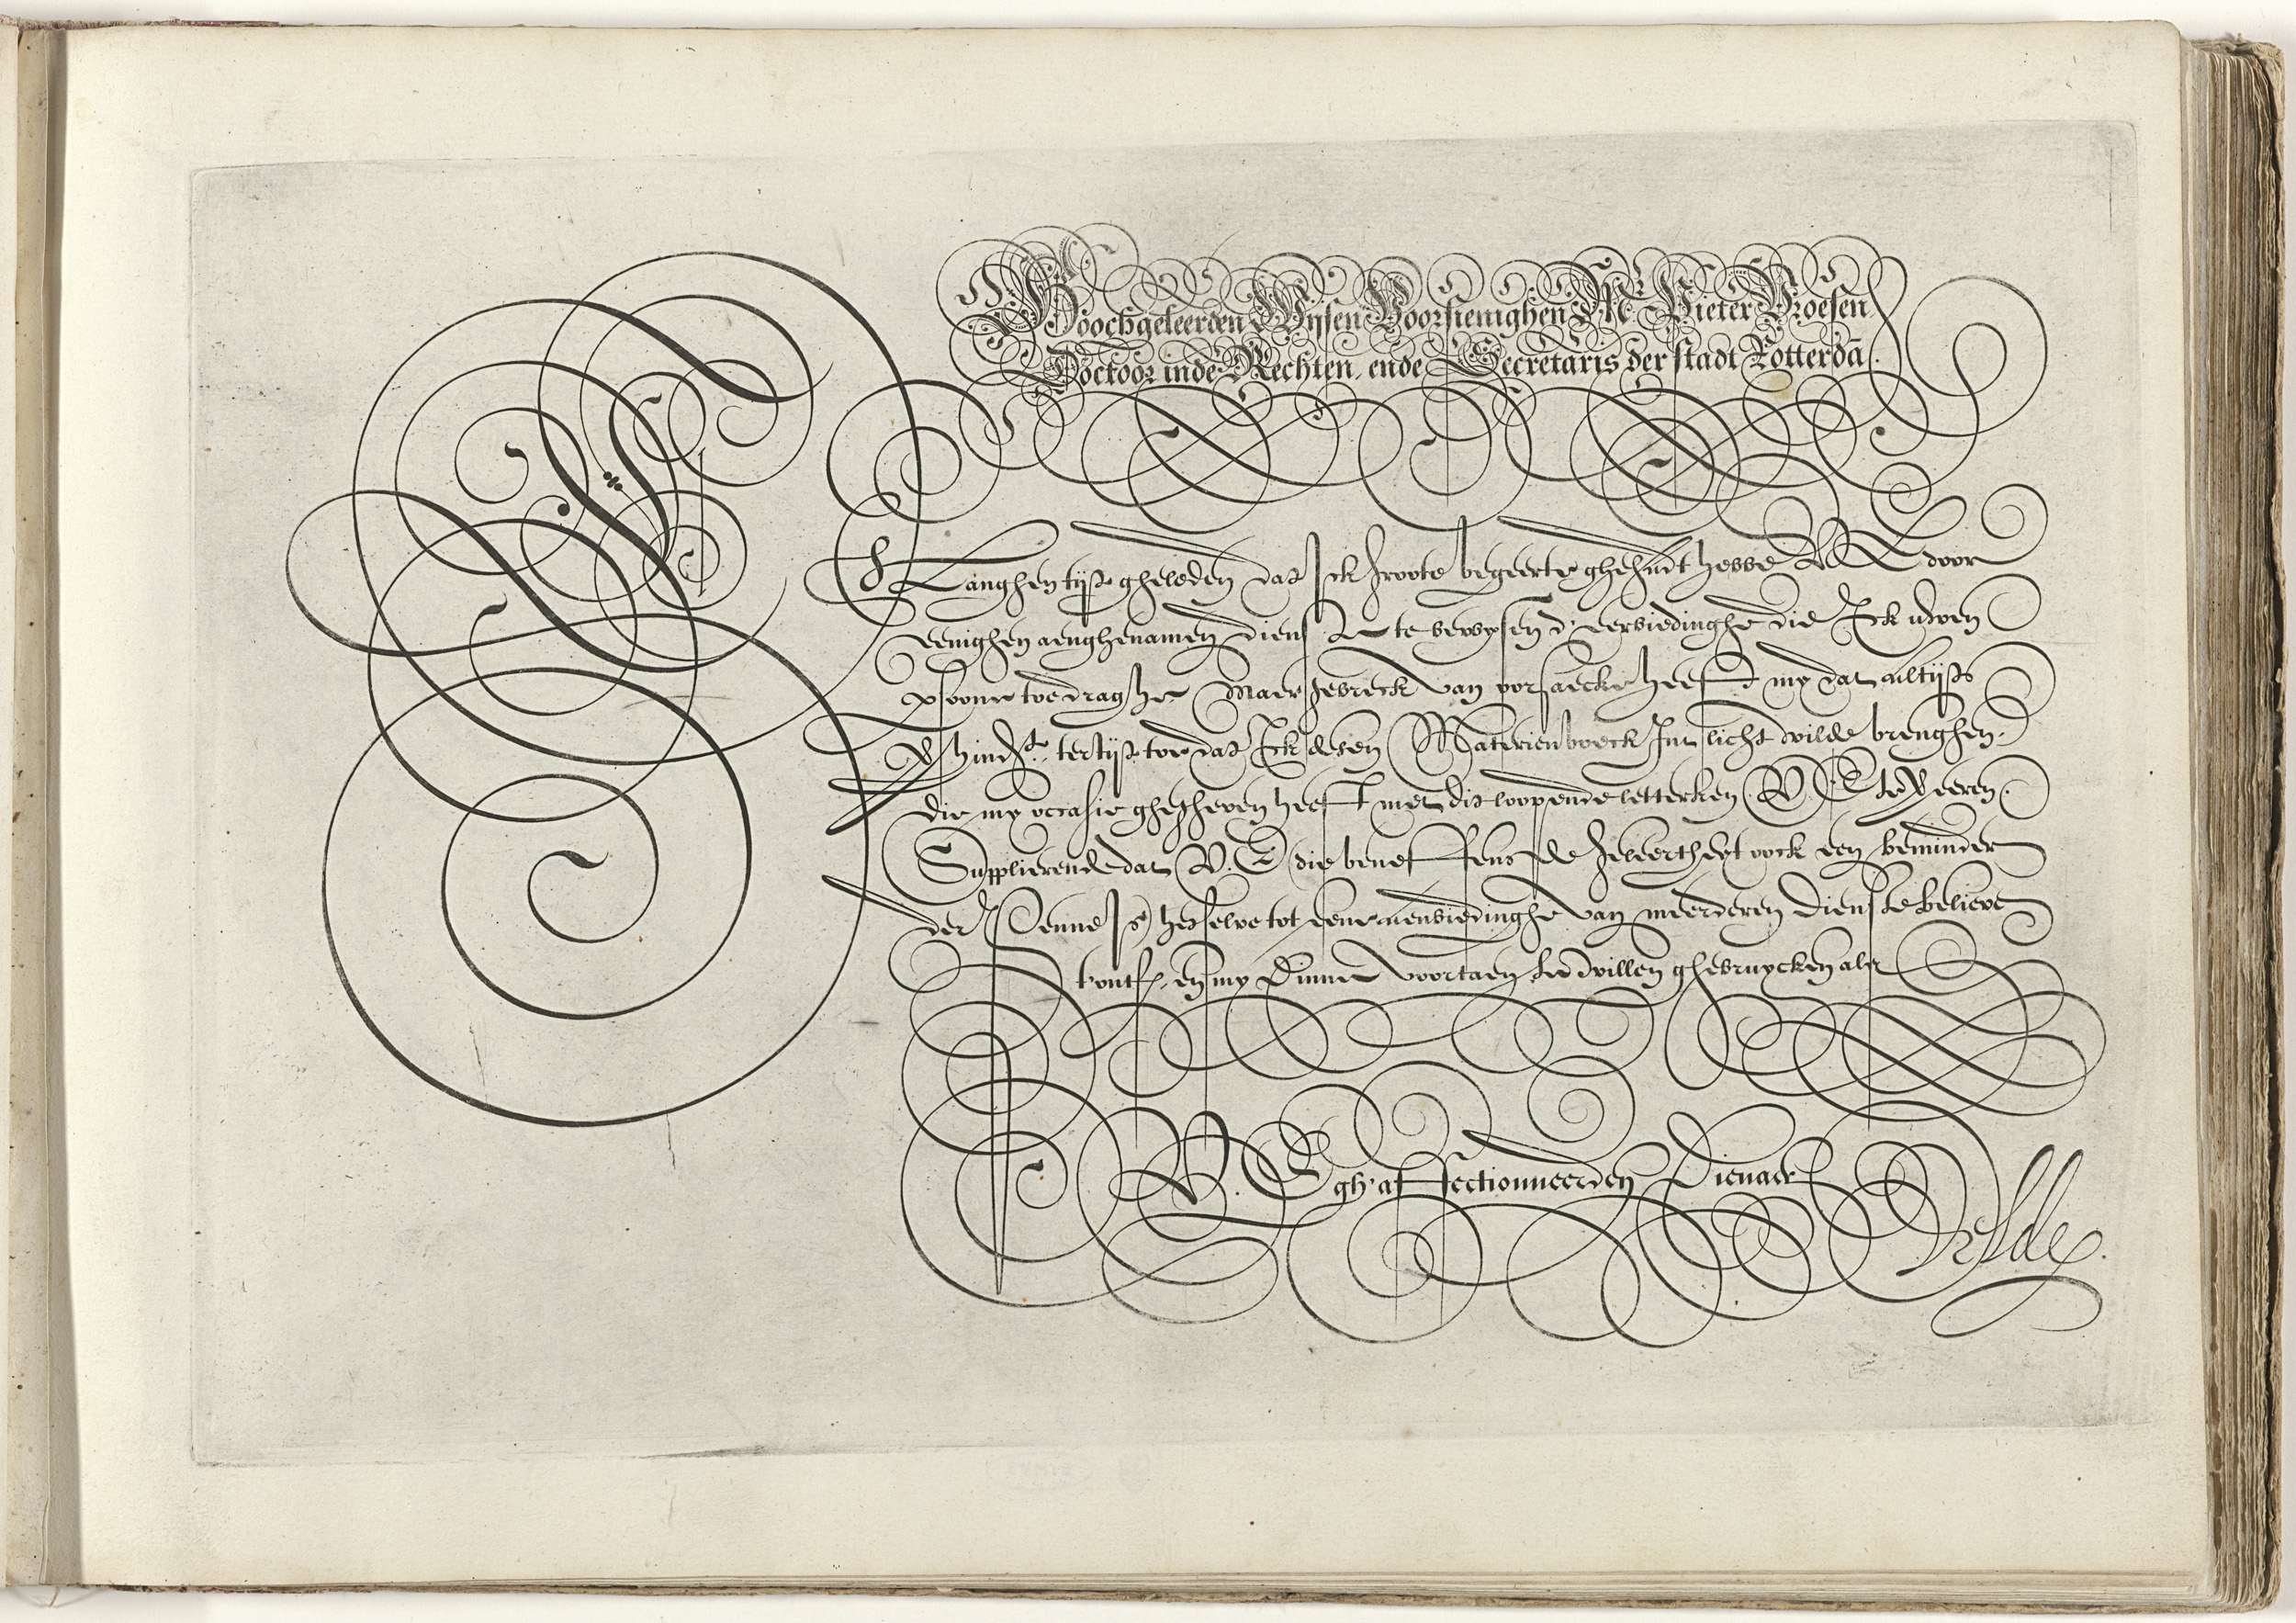 Hoochgeleerden Wijsen Voorsienighen Mr. Pieter Vroesen
Doctoor inde Rechten, ende Secretaris der stadt Rotterdā.
Langhen tijt gheleden dat Ick groote begeerte ghehadt hebbe V E door
eenighen aenghenamen dienst te bewysen d'eerbiedinghe die Ick uwen
psoone toedraghe Maer gebreck van oorsaecke heeft my dat altijts
tertijt toe dat Ick desen Materienboeck Int licht wilde brenghen.
die my occasie ghegheven heeft met dit loopende letterken V. E te eeren.
Supplierende dat V. E die beneffens de geleertheyt oock een beminder
der Penne Is het selve tot eene aenbiedinghe van meerderen dienste believe
t'ontf. eñ my Dinne voortaen te willen ghebruycken als
V. E gh'affectionneerden Dienaer
Velde.